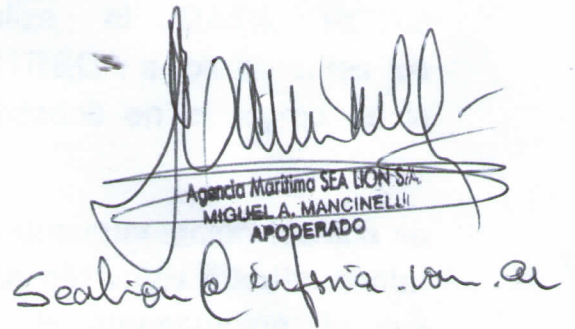 Agencia Marítima SEA LION S.A.
MIGUEL A. MANCINELLI
APODERADO
Sealion@infovia.com.ar